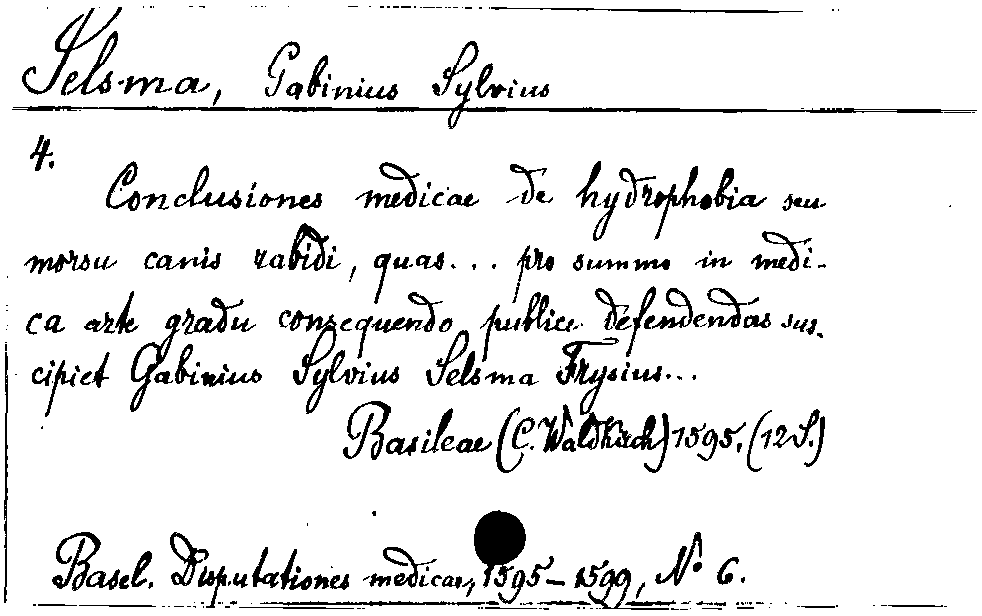 Selsma, Gabinius Sylvius
4.
Conclusiones medicae de hydrophobia seu
morsu canis rabidi, quas... pro summo in medi-
ca arte gradu consequendo publice defendendas sus-
cipiet Gabinius Sylvius Selsma Frysius...
Basileae (C. Waldkirch) 1595. (12 S.)
Basel. Disputationes medicae, 1595-1599, No 6.